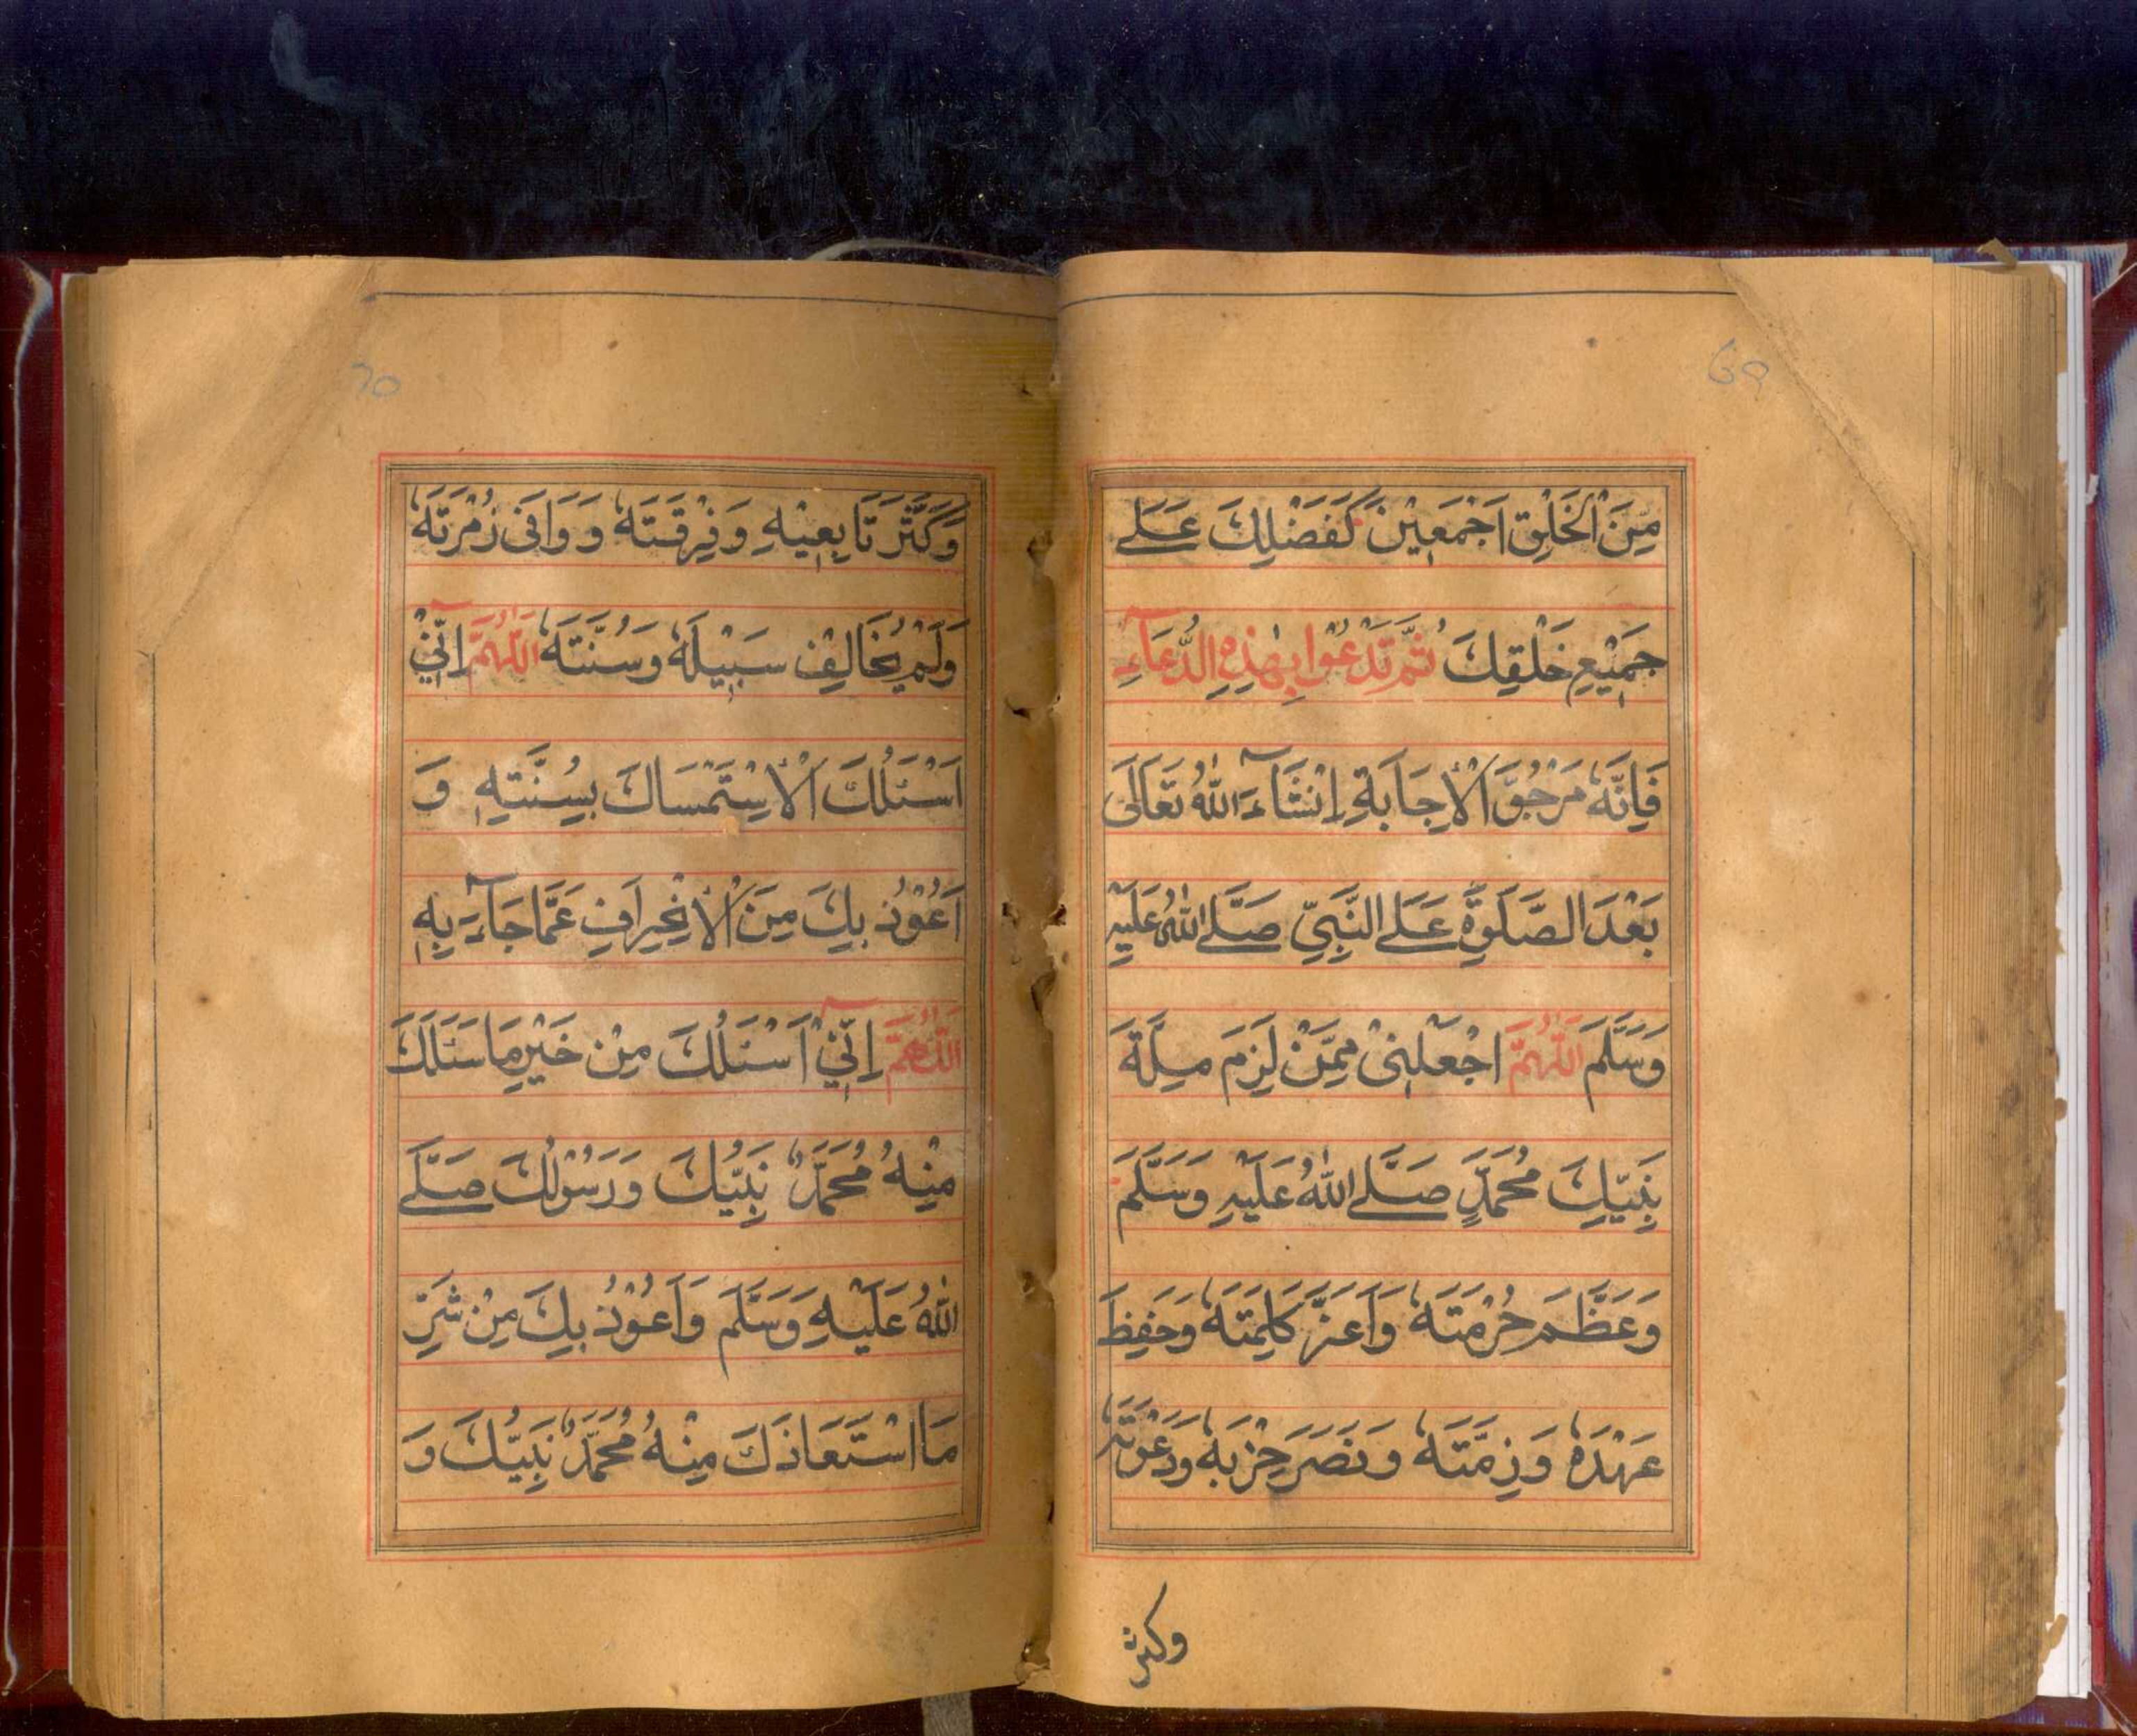 69
مِنَ الْخَلْقِ اَجْمَعِيْنَ كَفَضْلِكَ عَلٰے
جَمِيْعِ خَلْقِكَ ثُمَّ تَدْعُوْا بِهٰذِهِ الدُّعَآءِ
فَاِنَّهٗ مَرْجُوُّ الْاِجَابَةِ اِنْشَآءَ اللّٰهُ تَعَالٰى
بَعْدَ الصَّلٰوةِ عَلَے النَّبِيِّ صَلَّے اللّٰهُ عَلَيْهِ
وَسَلَّمَ اَللّٰهُمَّ اجْعَلْنِىْ مِمَّنْ لَزِمَ مِلَّةَ
نَبِيِّكَ مُحَمَّدٍ صَلَّے اللّٰهُ عَلَيْهِ وَسَلَّمَ
وَعَظَّمَ حُرْمَتَهٗ وَاَعَزَّ كَلِمَتَهٗ وَحَفِظَ
عَهْدَهٗ وَذِمَّتَهٗ وَنَصَرَ حِزْبَهٗ وَدَعْوَتَهٗ
وكثر
70
وَكَثَّرَ تَابِعِيْهِ وَفِرْقَتَهٗ وَوَافَى زُمْرَتَهٗ
وَلَمْ يُخَالِفْ سَبِيْلَهٗ وَسُنَّتَهٗ اَللّٰهُمَّ اِنِّيْٓ
اَسْئَلُكَ الْاِسْتِمْسَاكَ بِسُنَّتِهٖ وَ
اَعُوْذُ بِكَ مِنَ الْاِنْحِرَافِ عَمَّا جَآءَ بِهٖ
اَللّٰهُمَّ اِنِّيْٓ اَسْئَلُكَ مِنْ خَيْرِ مَا سَئَلَكَ
مِنْهُ مُحَمَّدٌ نَبِيُّكَ وَرَسُوْلُكَ صَلَّے
اللّٰهُ عَلَيْهِ وَسَلَّمَ وَاَعُوْذُ بِكَ مِنْ شَرِّ
مَا اسْتَعَاذَكَ مِنْهُ مُحَمَّدٌ نَبِيُّكَ وَ